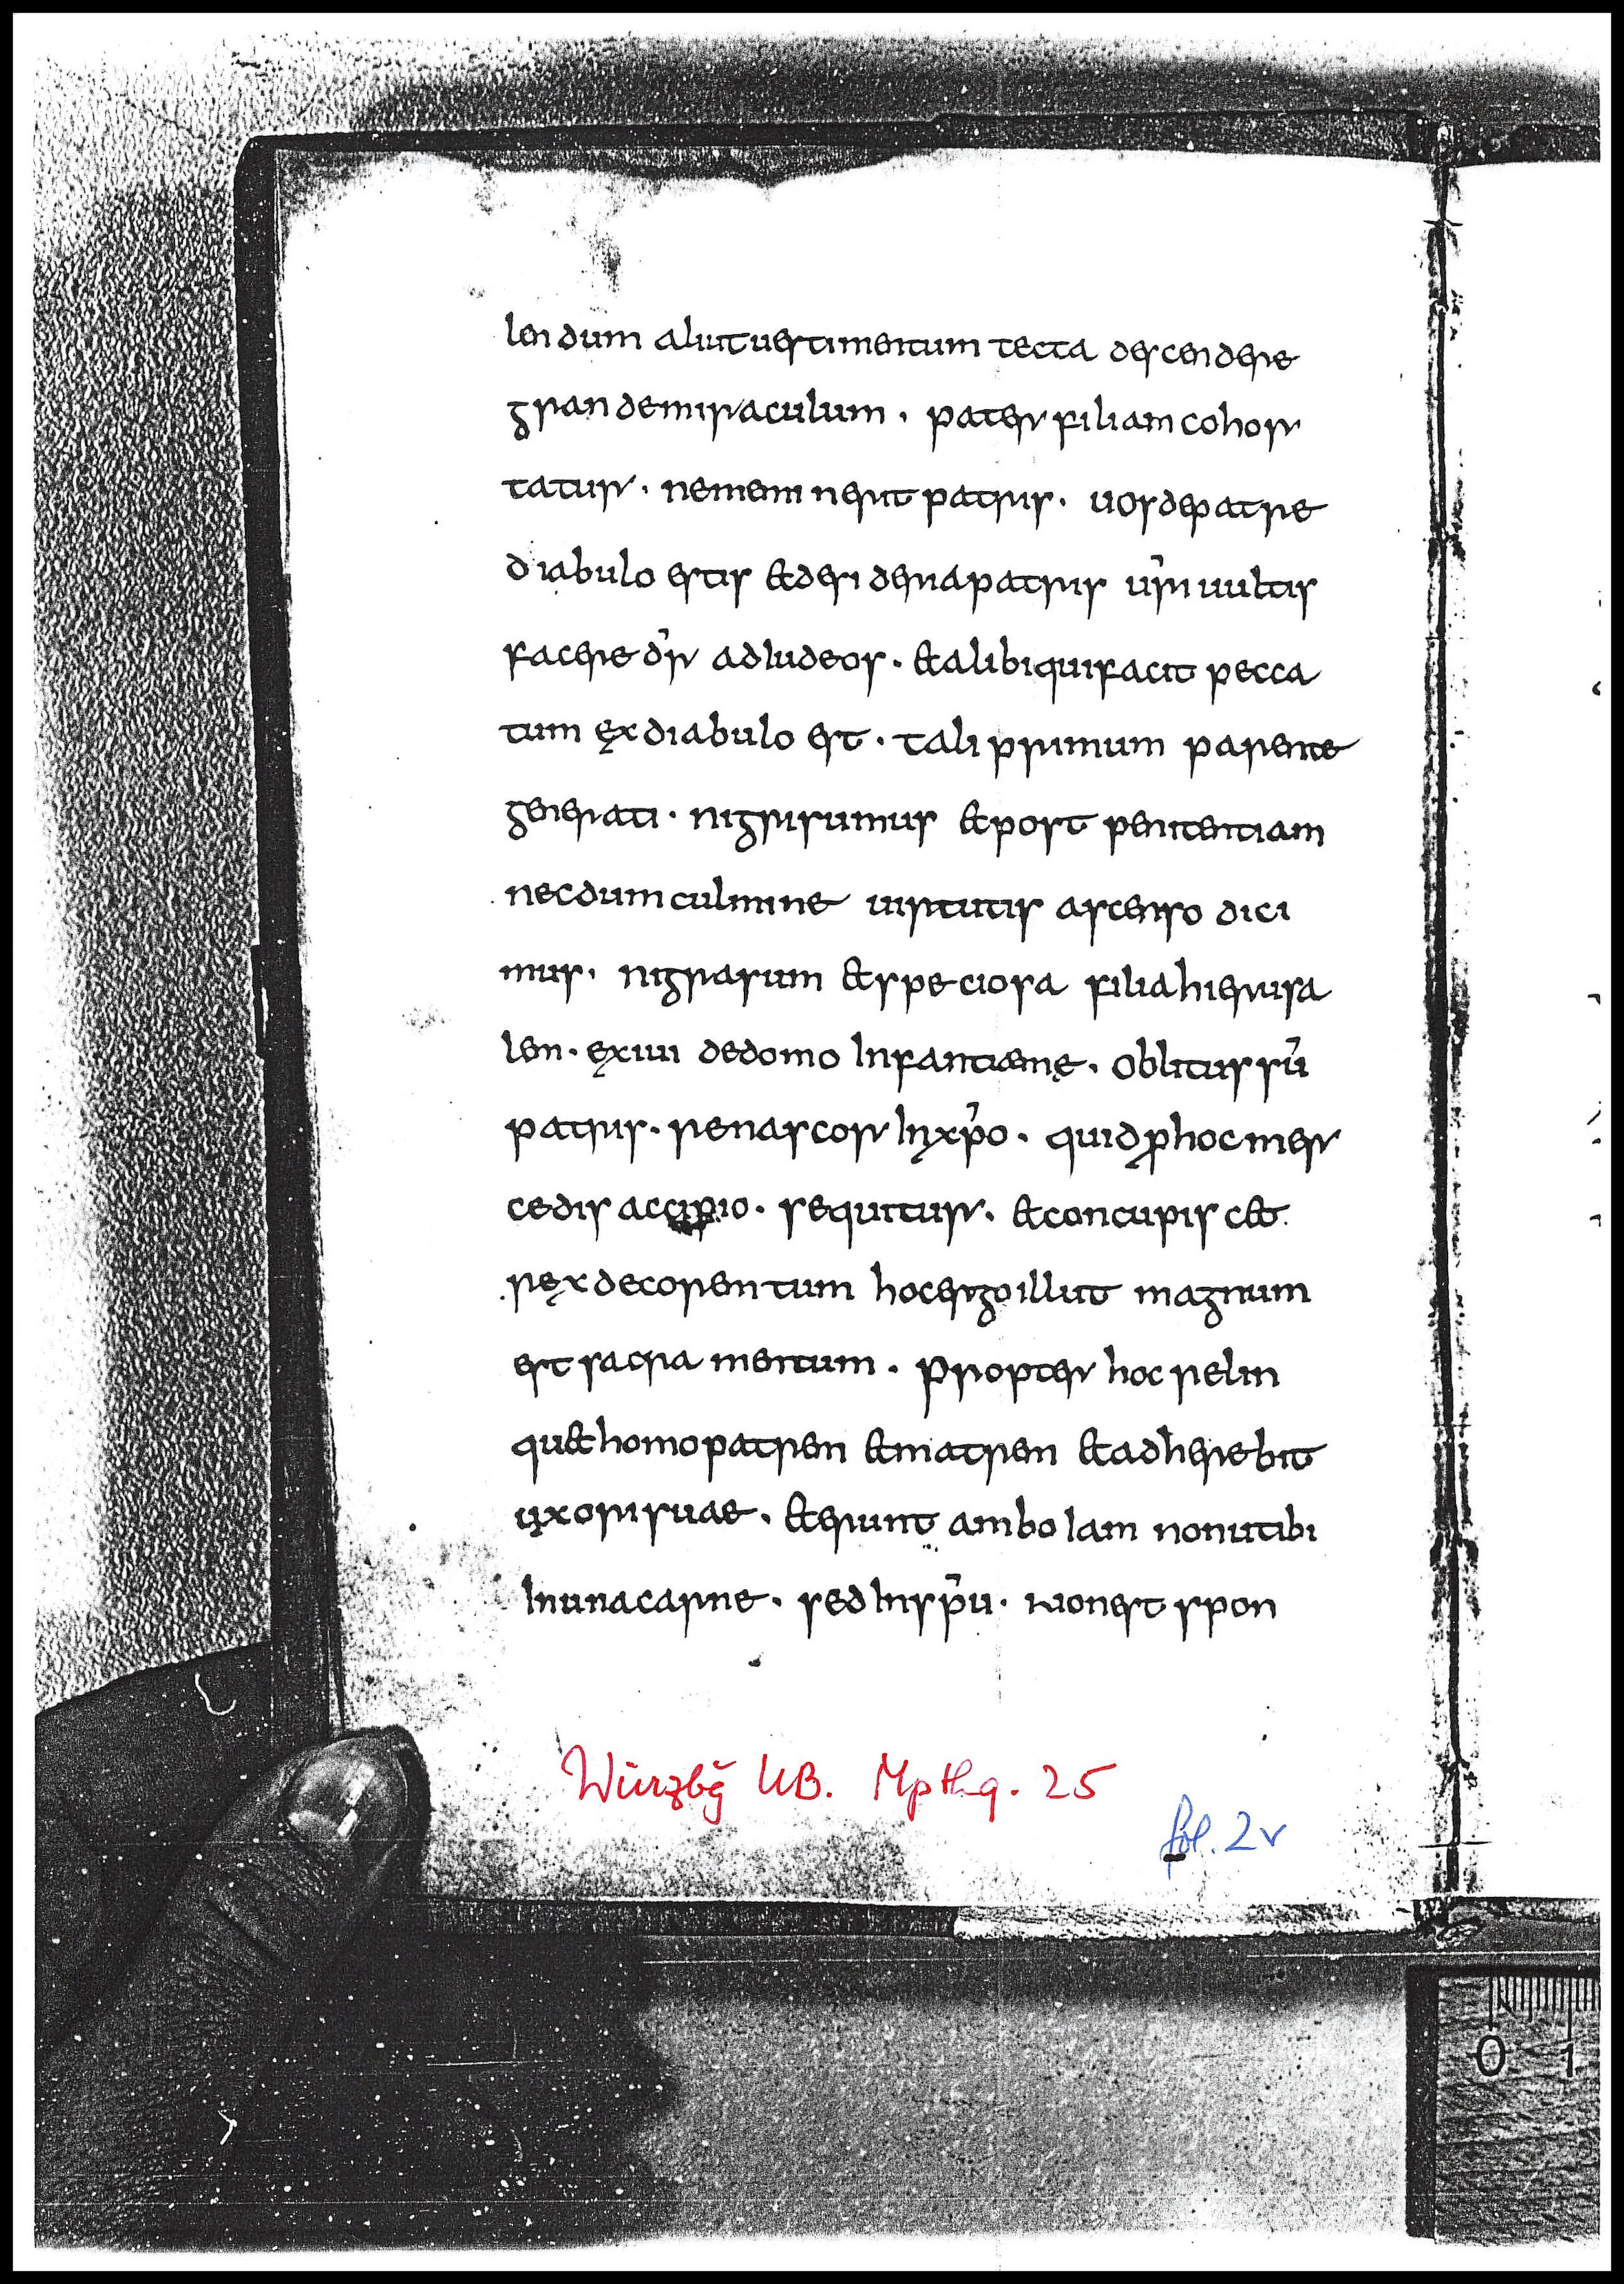 lendum aliut uestimentum tecta descendere
grande miraculum · pater filiam cohor
tatur · nemeninerit patris · uos de patre
diabulo estis & desideria patris uri uultis
facere dr ad Iudeos · & alibi qui facit pecca
tum ex diabulo est · tali primum parente
generati · nigri sumus & post penitentiam
necdum culmine uirtutis ascenso dici
mus · nigra sum & speciosa filia hierusa
lem · exiui de domo Infantiae me · oblitus sū
patris · renascor In xpo · quid p hoc mer
cedis accipio · sequitur · & concupisc&
rex decorem tuum hoc ergo illut magnum
est sacramentum · propter hoc relin
qu& homo patrem & matrem & adherebit
uxori suae · & erunt ambo Iam non ut ibi
In una carne · sed In spu · non est spon
Würzbg UB. Mpthq. 25
fol. 2v
0 1